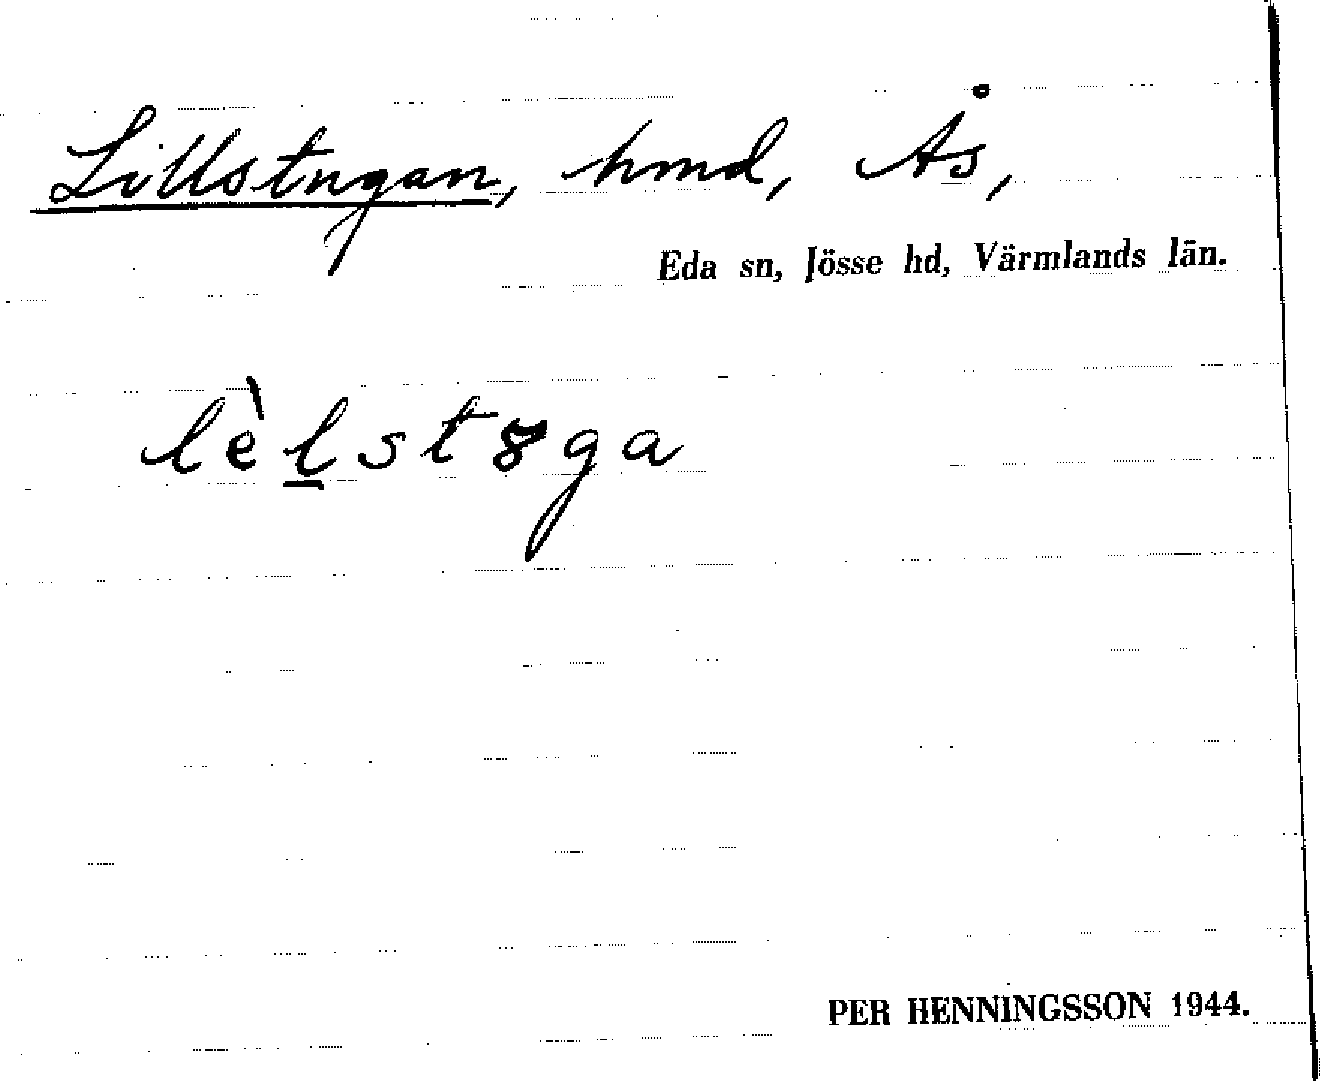 Lillstugan, hmd, Ås,
Eda sn, Jösse hd, Värmlands län.
lèl̲stȣga
PER HENNINGSSON 1944.